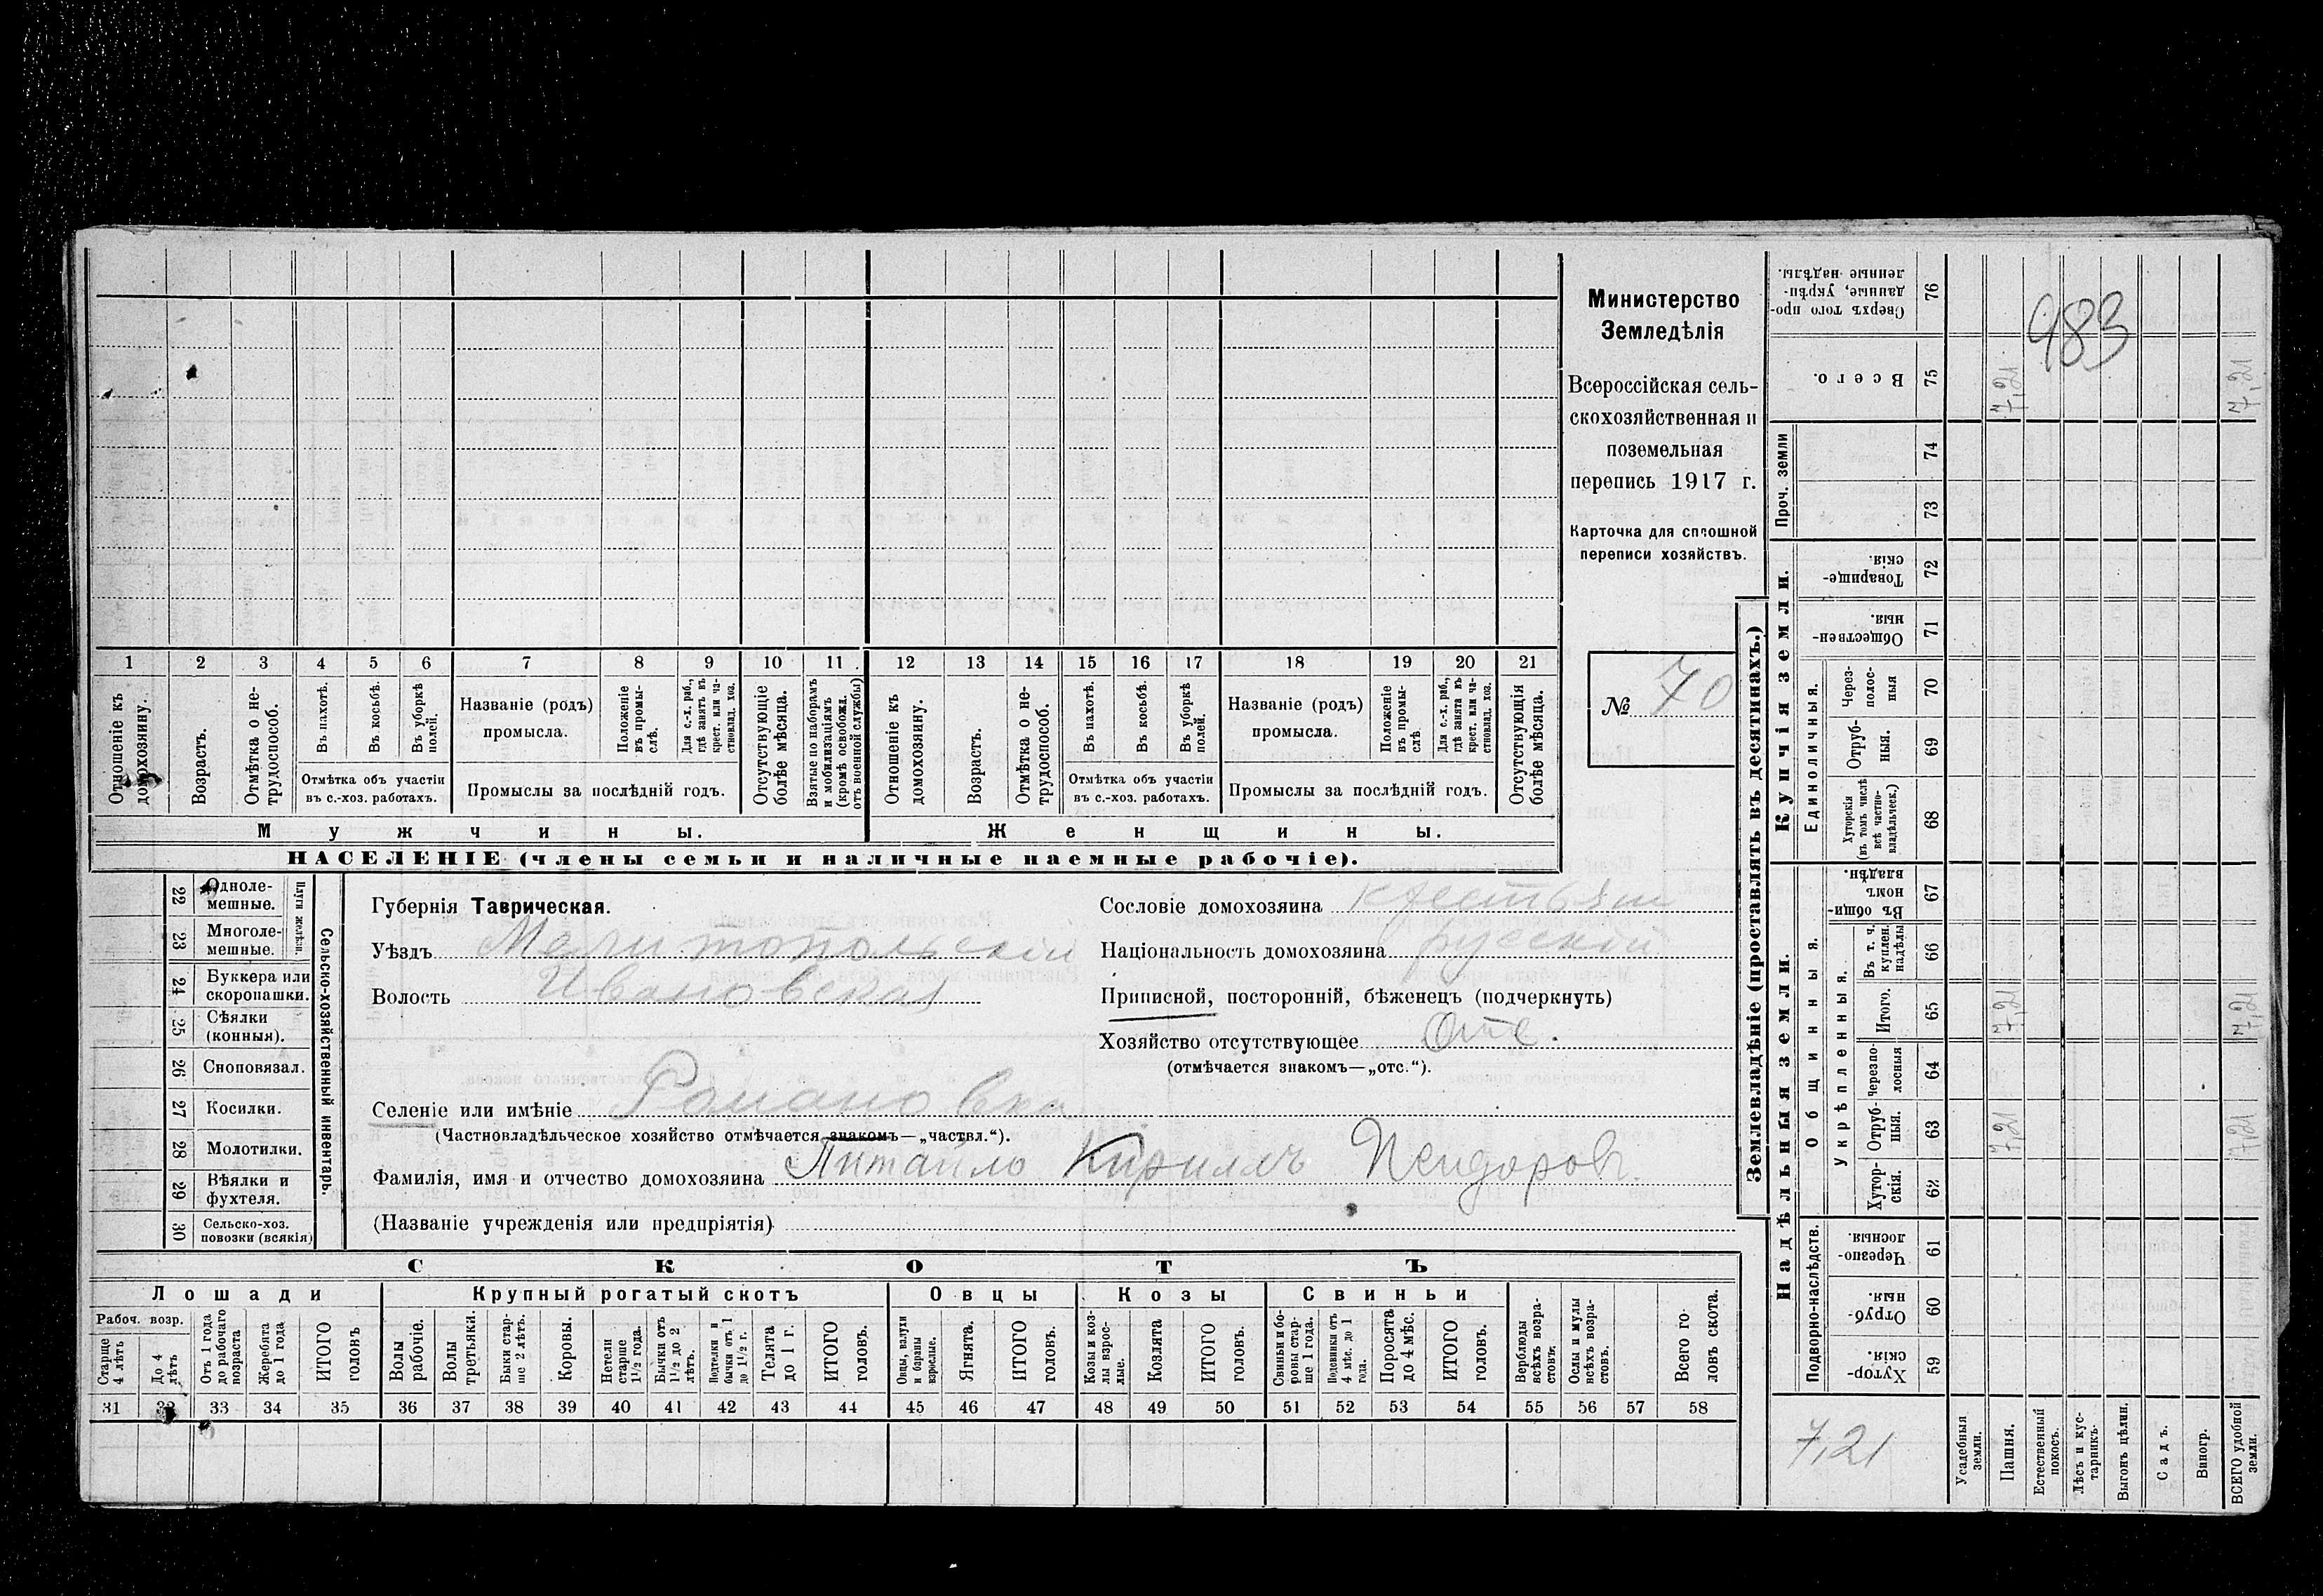 Министерство
Земледѣлія
Всероссійская сель-
скохозяйственная и
поземельная
перепись 1917 г.
Карточка для сплошной
переписи хозяйствъ.
№ 70
983
1 2 3 4 5 6 7 8 9 10 11 12 13 14 15 16 17 18 19 20 21
Отношеніе къ домохозяину.
Возрастъ.
Отмѣтка о не-трудоспособ.
Въ пахотѣ.
Въ косьбѣ.
Въ уборкѣ полей.
Отмѣтка объ участіи
въ с.-хоз. работахъ.
Названіе (родъ)
промысла.
Положеніе въ промы-слѣ.
Для с.-х. раб., гдѣ занятъ въ крест. или ча-стновлад. хоз.
Промыслы за послѣдній годъ.
Отсутствующіе болѣе мѣсяца.
Взятые по наборамъ и мобилизаціямъ (кромѣ освобожд. отъ военной службы)
Отношеніе къ домохозяину.
Возрастъ.
Отмѣтка о не-трудоспособ.
Въ пахотѣ.
Въ косьбѣ.
Въ уборкѣ полей.
Отмѣтка объ участіи
въ с.-хоз. работахъ.
Названіе (родъ)
промысла.
Положеніе въ промы-слѣ.
Для с.-х. раб., гдѣ занята въ крест. или ча-стновлад. хоз.
Промыслы за послѣдній годъ.
Отсутствующія болѣе мѣсяца.
Мужчины. Женщины.
НАСЕЛЕНІЕ (члены семьи и наличные наемные рабочіе).
Сельско-хозяйственный инвентарь.
Плуги желѣзн.
22 Одноле-мешные.
23 Многоле-мешные.
24 Буккера или скоропашки.
25 Сѣялки (конныя).
26 Сноповязал.
27 Косилки.
28 Молотилки.
29 Вѣялки и фухтеля.
30 Сельско-хоз. повозки (всякія)
Губернія Таврическая.
Уѣздъ Мелитопольскій
Волость Ивановская
Сословіе домохозяина крестьян
Національность домохозяина русскій
Приписной, посторонній, бѣженецъ (подчеркнуть)
Хозяйство отсутствующее Отс.
(отмѣчается знакомъ—„отс.“).
Селеніе или имѣніе Романовка
(Частновладѣльческое хозяйство отмѣчается знакомъ—„частвл.“).
Фамилія, имя и отчество домохозяина Питайло Кирилъ
(Названіе учрежденія или предпріятія)
СКОТЪ
Лошади Крупный рогатый скотъ Овцы Козы Свиньи
Рабоч. возр.
Старше 4 лѣтъ
До 4 лѣтъ
Отъ 1 года до рабочаго возраста
Жеребята до 1 года
ИТОГО головъ
Волы рабочіе.
Волы третьяки.
Быки стар-ше 2 лѣтъ.
Коровы.
Нетели старше 1½ года.
Бычки отъ 1½ до 2 лѣтъ.
Подтелки и бычки отъ 1 до 1½ г.
Телята до 1 г.
ИТОГО головъ.
Овцы, валухи и бараны взрослые.
Ягнята.
ИТОГО головъ.
Козы и коз-лы взрос-лые.
Козлята
ИТОГО головъ.
Свиньи и бо-ровы стар-ше 1 года.
Подсвинки отъ 4 мѣс. до 1 года.
Поросята до 4 мѣс.
ИТОГО головъ.
Верблюды всѣхъ возра-стовъ.
Ослы и мулы всѣхъ возра-стовъ.
Всего го-ловъ скота.
31 32 33 34 35 36 37 38 39 40 41 42 43 44 45 46 47 48 49 50 51 52 53 54 55 56 57 58
Землевладѣніе (проставлять въ десятинахъ.)
Надѣльныя земли.
Купчія земли.
Проч. земли
Подворно-наслѣдств.
Общинныя.
Укрѣпленныя.
Единоличныя.
Сверхъ того про-данные, укрѣп-ленные надѣлы. 76
Всего. 75 7,21 7,21
74
73
Товарище-скія. 72
Обществен-ныя. 71
Через-полос-ныя 70
Отруб-ныя. 69
Хуторскія (въ томъ числѣ всѣ частно-владѣльческ.) 68
Въ общи-номъ владѣн. 67
Въ т. ч. куплен. надѣлы 66
Итого. 65 7,21 7,21
Черезпо-лосныя 64
Отруб-ныя. 63 7,21 7,21
Хутор-скія. 62
Черезпо-лосныя. 61
Отруб-ныя. 60
Хутор-скія. 59
7,21
Усадебныя земли.
Пашня.
Естественный покосъ.
Лѣсъ и кус-тарникъ.
Выгонъ цѣлин.
Садъ.
Виногр.
ВСЕГО удобной земли.